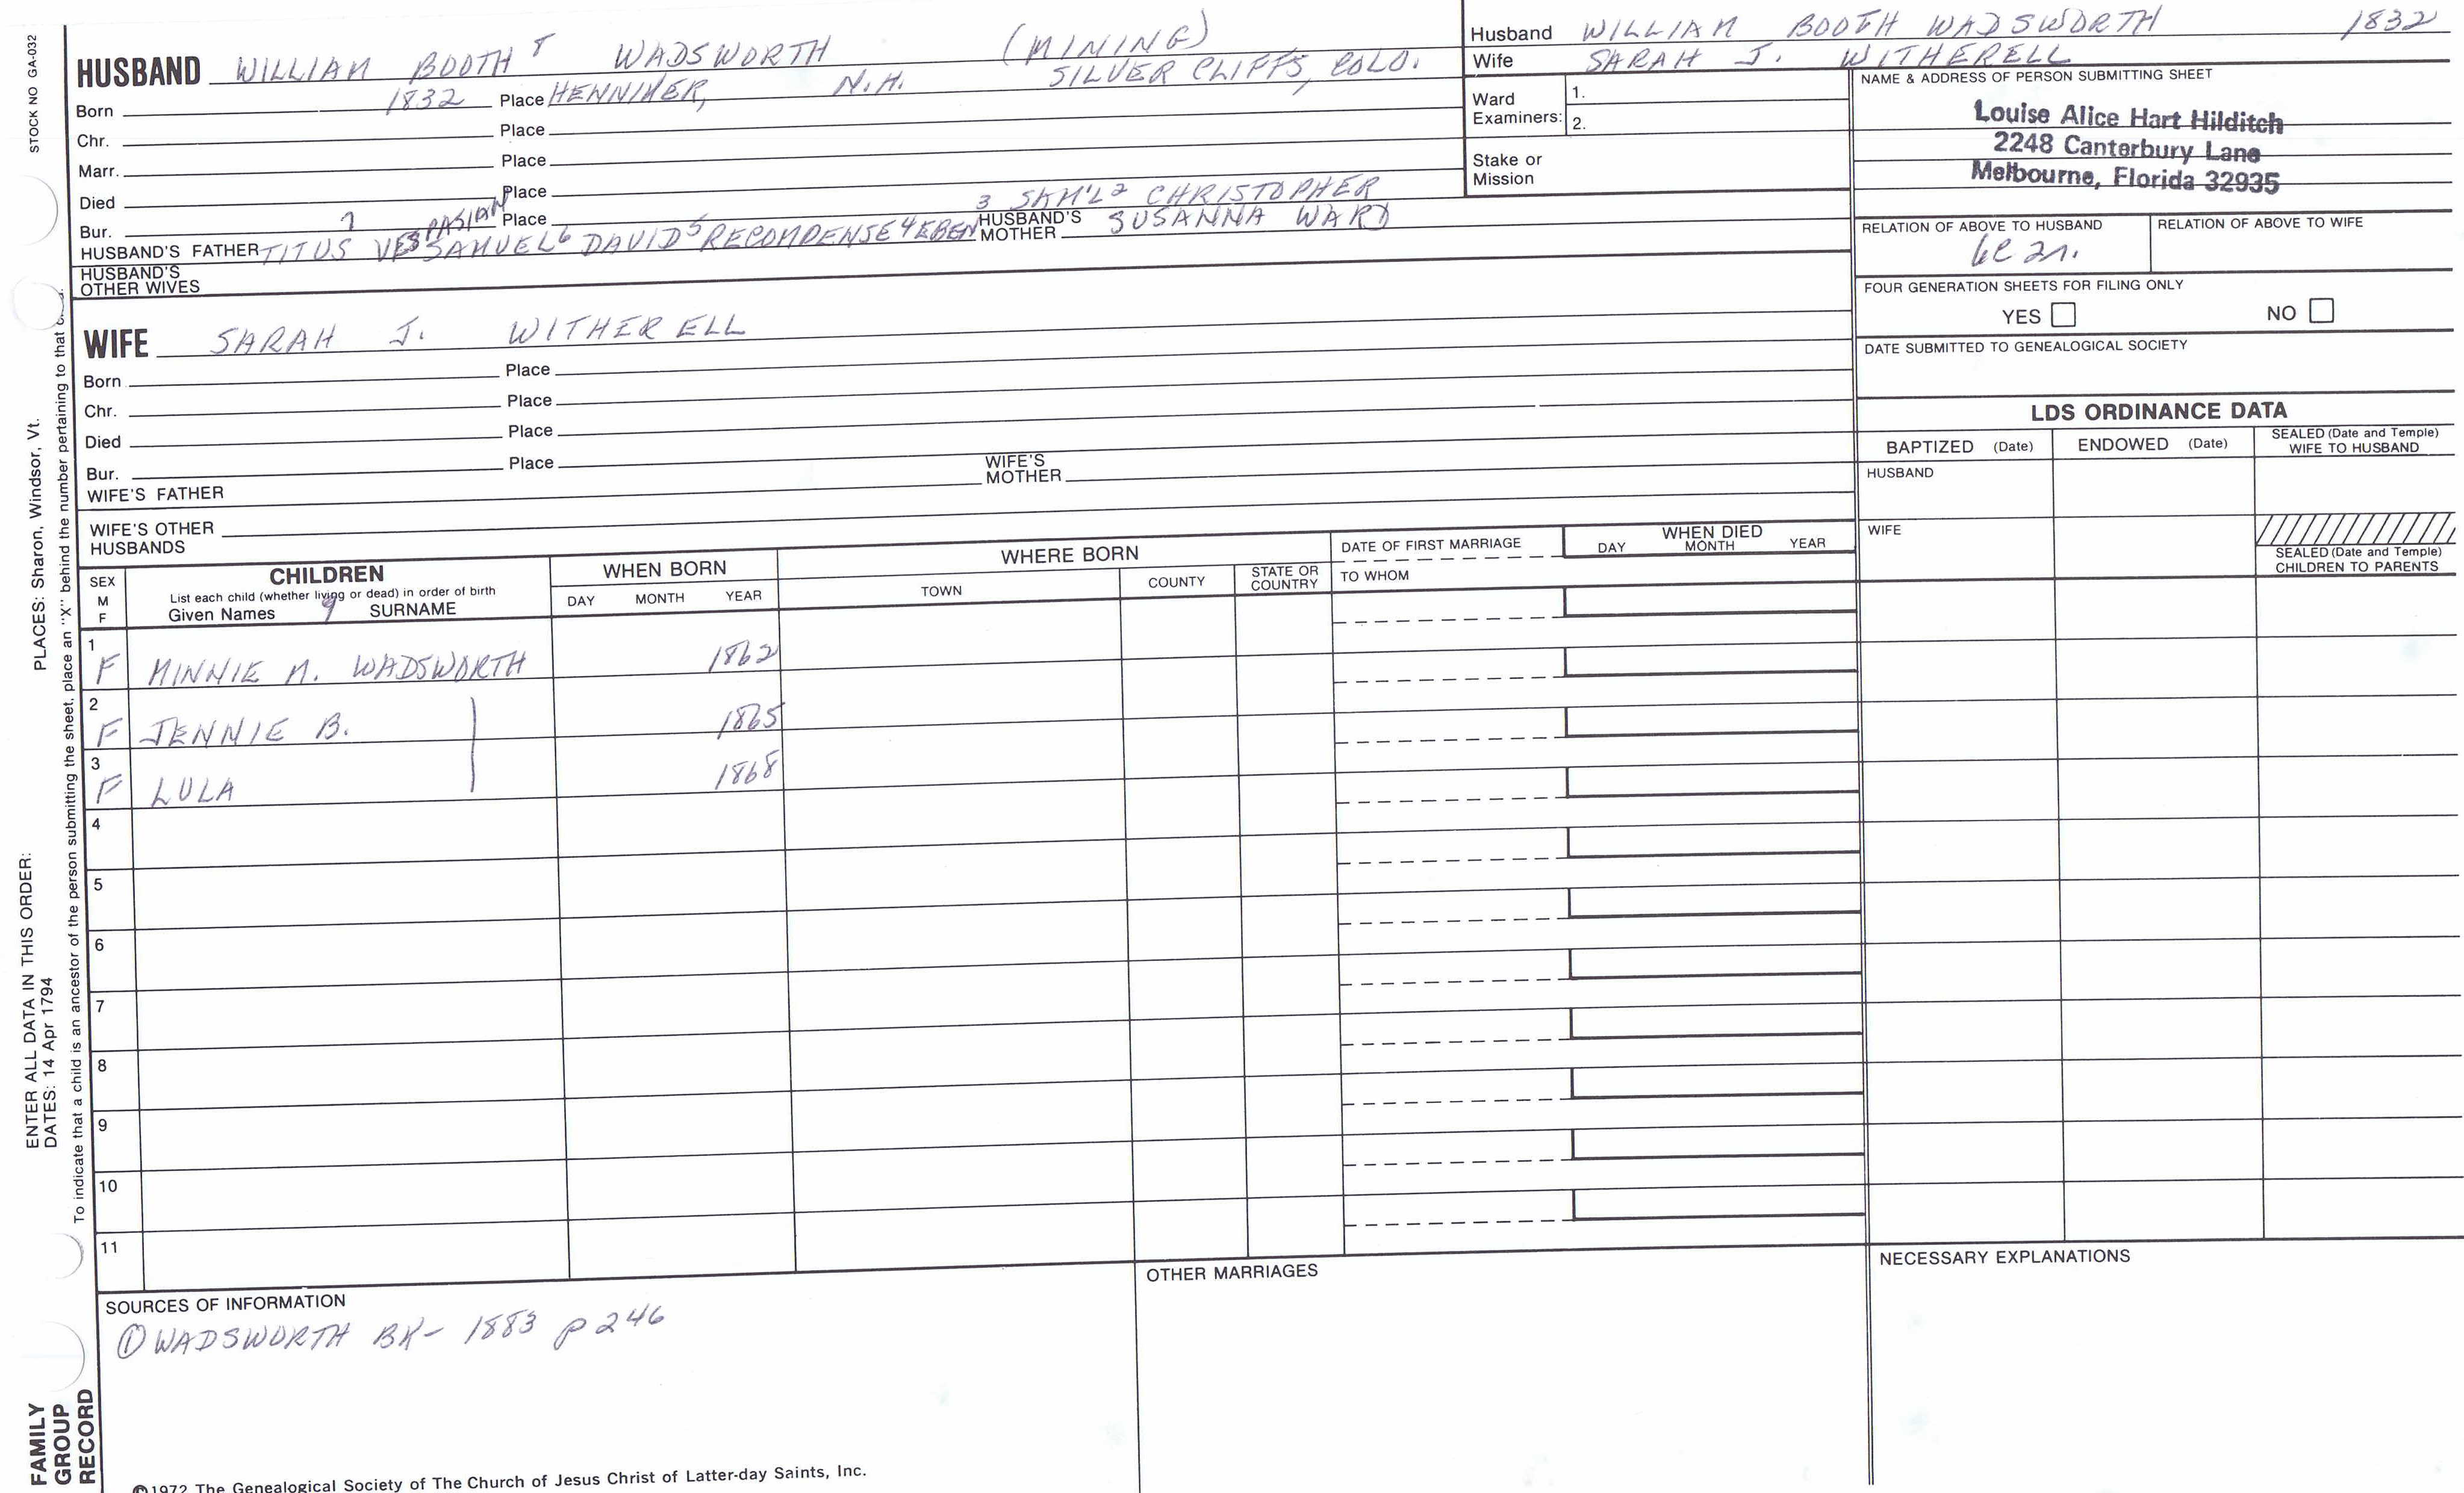 STOCK NO GA-032
HUSBAND WILLIAM BOOTH 8 WADSWORTH (MINING)
SILVER CLIFFS, COLO.
Born 1832 Place HENNIKER, N.H.
Chr. Place
Marr. Place
Died Place
Bur. Place
HUSBAND'S FATHER TITUS VESPASIAN 7 SAMUEL 6 DAVID 5 RECOMPENSE 4 EBEN 3 SAM'L 2 CHRISTOPHER
HUSBAND'S MOTHER SUSANNA WARD
HUSBAND'S OTHER WIVES
WIFE SARAH J. WITHERELL
Born Place
Chr. Place
Died Place
Bur. Place
WIFE'S FATHER
WIFE'S MOTHER
WIFE'S OTHER HUSBANDS
Husband WILLIAM BOOTH WADSWORTH 1832
Wife SARAH J. WITHERELL
Ward Examiners: 1.
2.
Stake or Mission
NAME & ADDRESS OF PERSON SUBMITTING SHEET
Louise Alice Hart Hilditch
2248 Canterbury Lane
Melbourne, Florida 32935
RELATION OF ABOVE TO HUSBAND
RELATION OF ABOVE TO WIFE
FOUR GENERATION SHEETS FOR FILING ONLY
YES NO
DATE SUBMITTED TO GENEALOGICAL SOCIETY
LDS ORDINANCE DATA
BAPTIZED (Date) ENDOWED (Date) SEALED (Date and Temple) WIFE TO HUSBAND
HUSBAND
WIFE
SEALED (Date and Temple) CHILDREN TO PARENTS
SEX
M
F
CHILDREN
List each child (whether living or dead) in order of birth
Given Names 9 SURNAME
WHEN BORN
DAY MONTH YEAR
WHERE BORN
TOWN COUNTY STATE OR COUNTRY
DATE OF FIRST MARRIAGE
TO WHOM
WHEN DIED
DAY MONTH YEAR
1 F MINNIE M. WADSWORTH 1862
2 F JENNIE B. 1865
3 F LULA 1868
4
5
6
7
8
9
10
11
SOURCES OF INFORMATION
① WADSWORTH BK- 1883 p 246
OTHER MARRIAGES
NECESSARY EXPLANATIONS
©1972 The Genealogical Society of The Church of Jesus Christ of Latter-day Saints, Inc.
FAMILY
GROUP
RECORD
ENTER ALL DATA IN THIS ORDER:
DATES: 14 Apr 1794
PLACES: Sharon, Windsor, Vt.
To indicate that a child is an ancestor of the person submitting the sheet, place an "X" behind the number pertaining to that